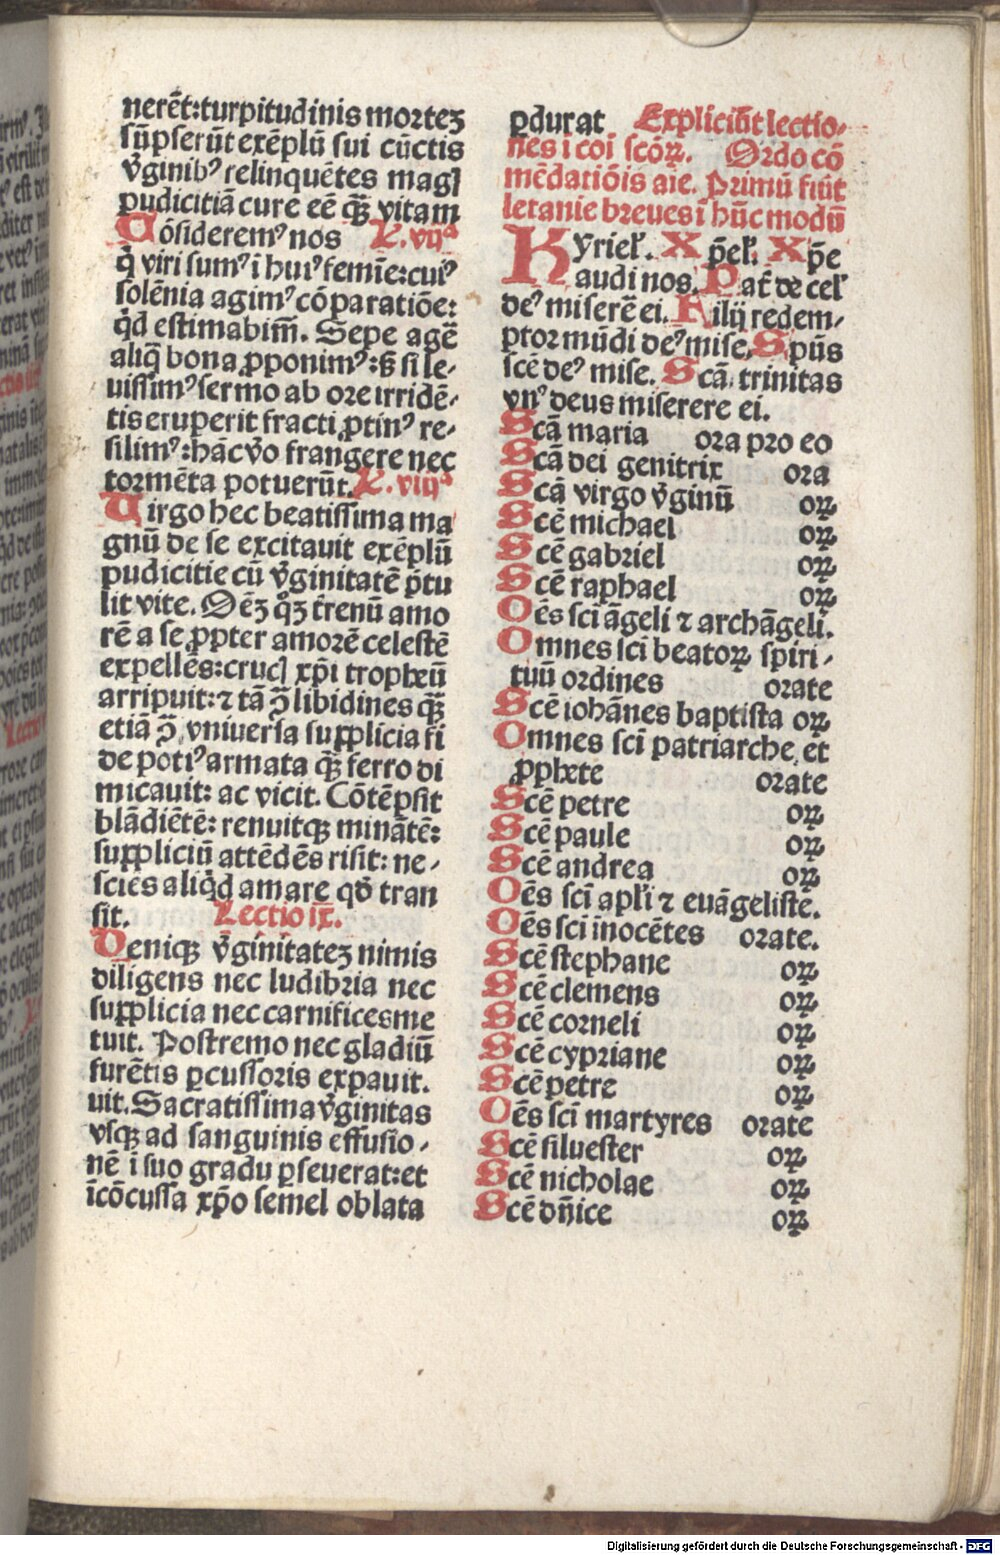 nerēt:turpitudinis morteʒ
sūpserūt exēplū sui cūctis
v̄ginibꝰ relinquētes magꝭ
pudicitiā cure eē qꝫ̄ vitam
Cōsideremꝰ nos L.vijᵃ
q̇ viri sumꝰ ī huiꝰ femīe:cuiꝰ
solēnia agimꝰ cōparatiōe:
qͥd estimabim̄. Sepe agē
aliq̄ bona ꝓponimꝰ:ꝫ si le-
uissimꝰ sermo ab ore irridē-
tis eruperit fracti ꝓtinꝰ re-
silimꝰ:hāc v̊o frangere nec
tormēta potuerūt. L.viijᵃ
Uirgo hec beatissima ma
gnū de se excitauit exēplū
pudicitie cū v̄ginitatē p̄tu
lit vite. Oēʒ qͦʒ t̄renū amo
rē a se ꝓpter amorē celestē
expellēs:crucꝭ xp̄i tropheū
arripuit:⁊ tā ꝯ̄ libidines qꝫ̄
etiā ꝯ̄ vniuersa supplicia fi
de potiꝰ armata qꝫ̄ ferro di
micauit: ac vicit. Cōtēpsit
blādiētē: renuitqꝫ minātē:
suppliciū attēdēs risit: ne-
sciēs aliqͥd amare qd̄ tran
sit. Lectio ix.
Deniqꝫ v̄ginitateʒ nimis
diligens nec ludibria nec
supplicia nec carnifices me
tuit. Postremo nec gladiū
furētis ꝑcussoris expauit.
uit. Sacratissima v̄ginitas
vsqꝫ ad sanguinis effusio-
nē ī suo gradu ꝑseuerat:et
īcōcussa xp̄o semel oblata
ꝑdurat Expliciūt lectio-
nes i coī scōꝝ. Ordo cō
mēdatiōis aīe. Primū fiūt
letanie breues ī hūc modū
Kyrieꝉ. Xp̄eꝉ. Xp̄e
audi nos. Pat̄ de ceꝉ
deꝰ miserē ei. Filij redem-
ptor mūdi deꝰ mise. Spūs
scē deꝰ mise. Scā trinitas
vnꝰ deus miserere ei.
Scā maria ora pro eo
Scā dei genitrix ora
Scā virgo v̄ginū oꝝ
Scē michael oꝝ
Scē gabriel oꝝ
Scē raphael oꝝ
Oēs scī āgeli ⁊ archāgeli.
Omnes scī beatoꝝ spiri-
tuū ordines orate
Scē iohānes baptista oꝝ
Omnes scī patriarche et
ꝓphete orate
Scē petre oꝝ
Scē paule oꝝ
Scē andrea oꝝ
Oēs scī apꝉi ⁊ euāgeliste.
Oēs scī īnocētes orate.
Scē stephane oꝝ
Scē clemens oꝝ
Scē corneli oꝝ
Scē cypriane oꝝ
Scē petre oꝝ
Oēs scī martyres orate
Scē siluester oꝝ
Scē nicholae oꝝ
Scē dn̄ice oꝝ
Digitalisierung gefördert durch die Deutsche Forschungsgemeinschaft - DFG